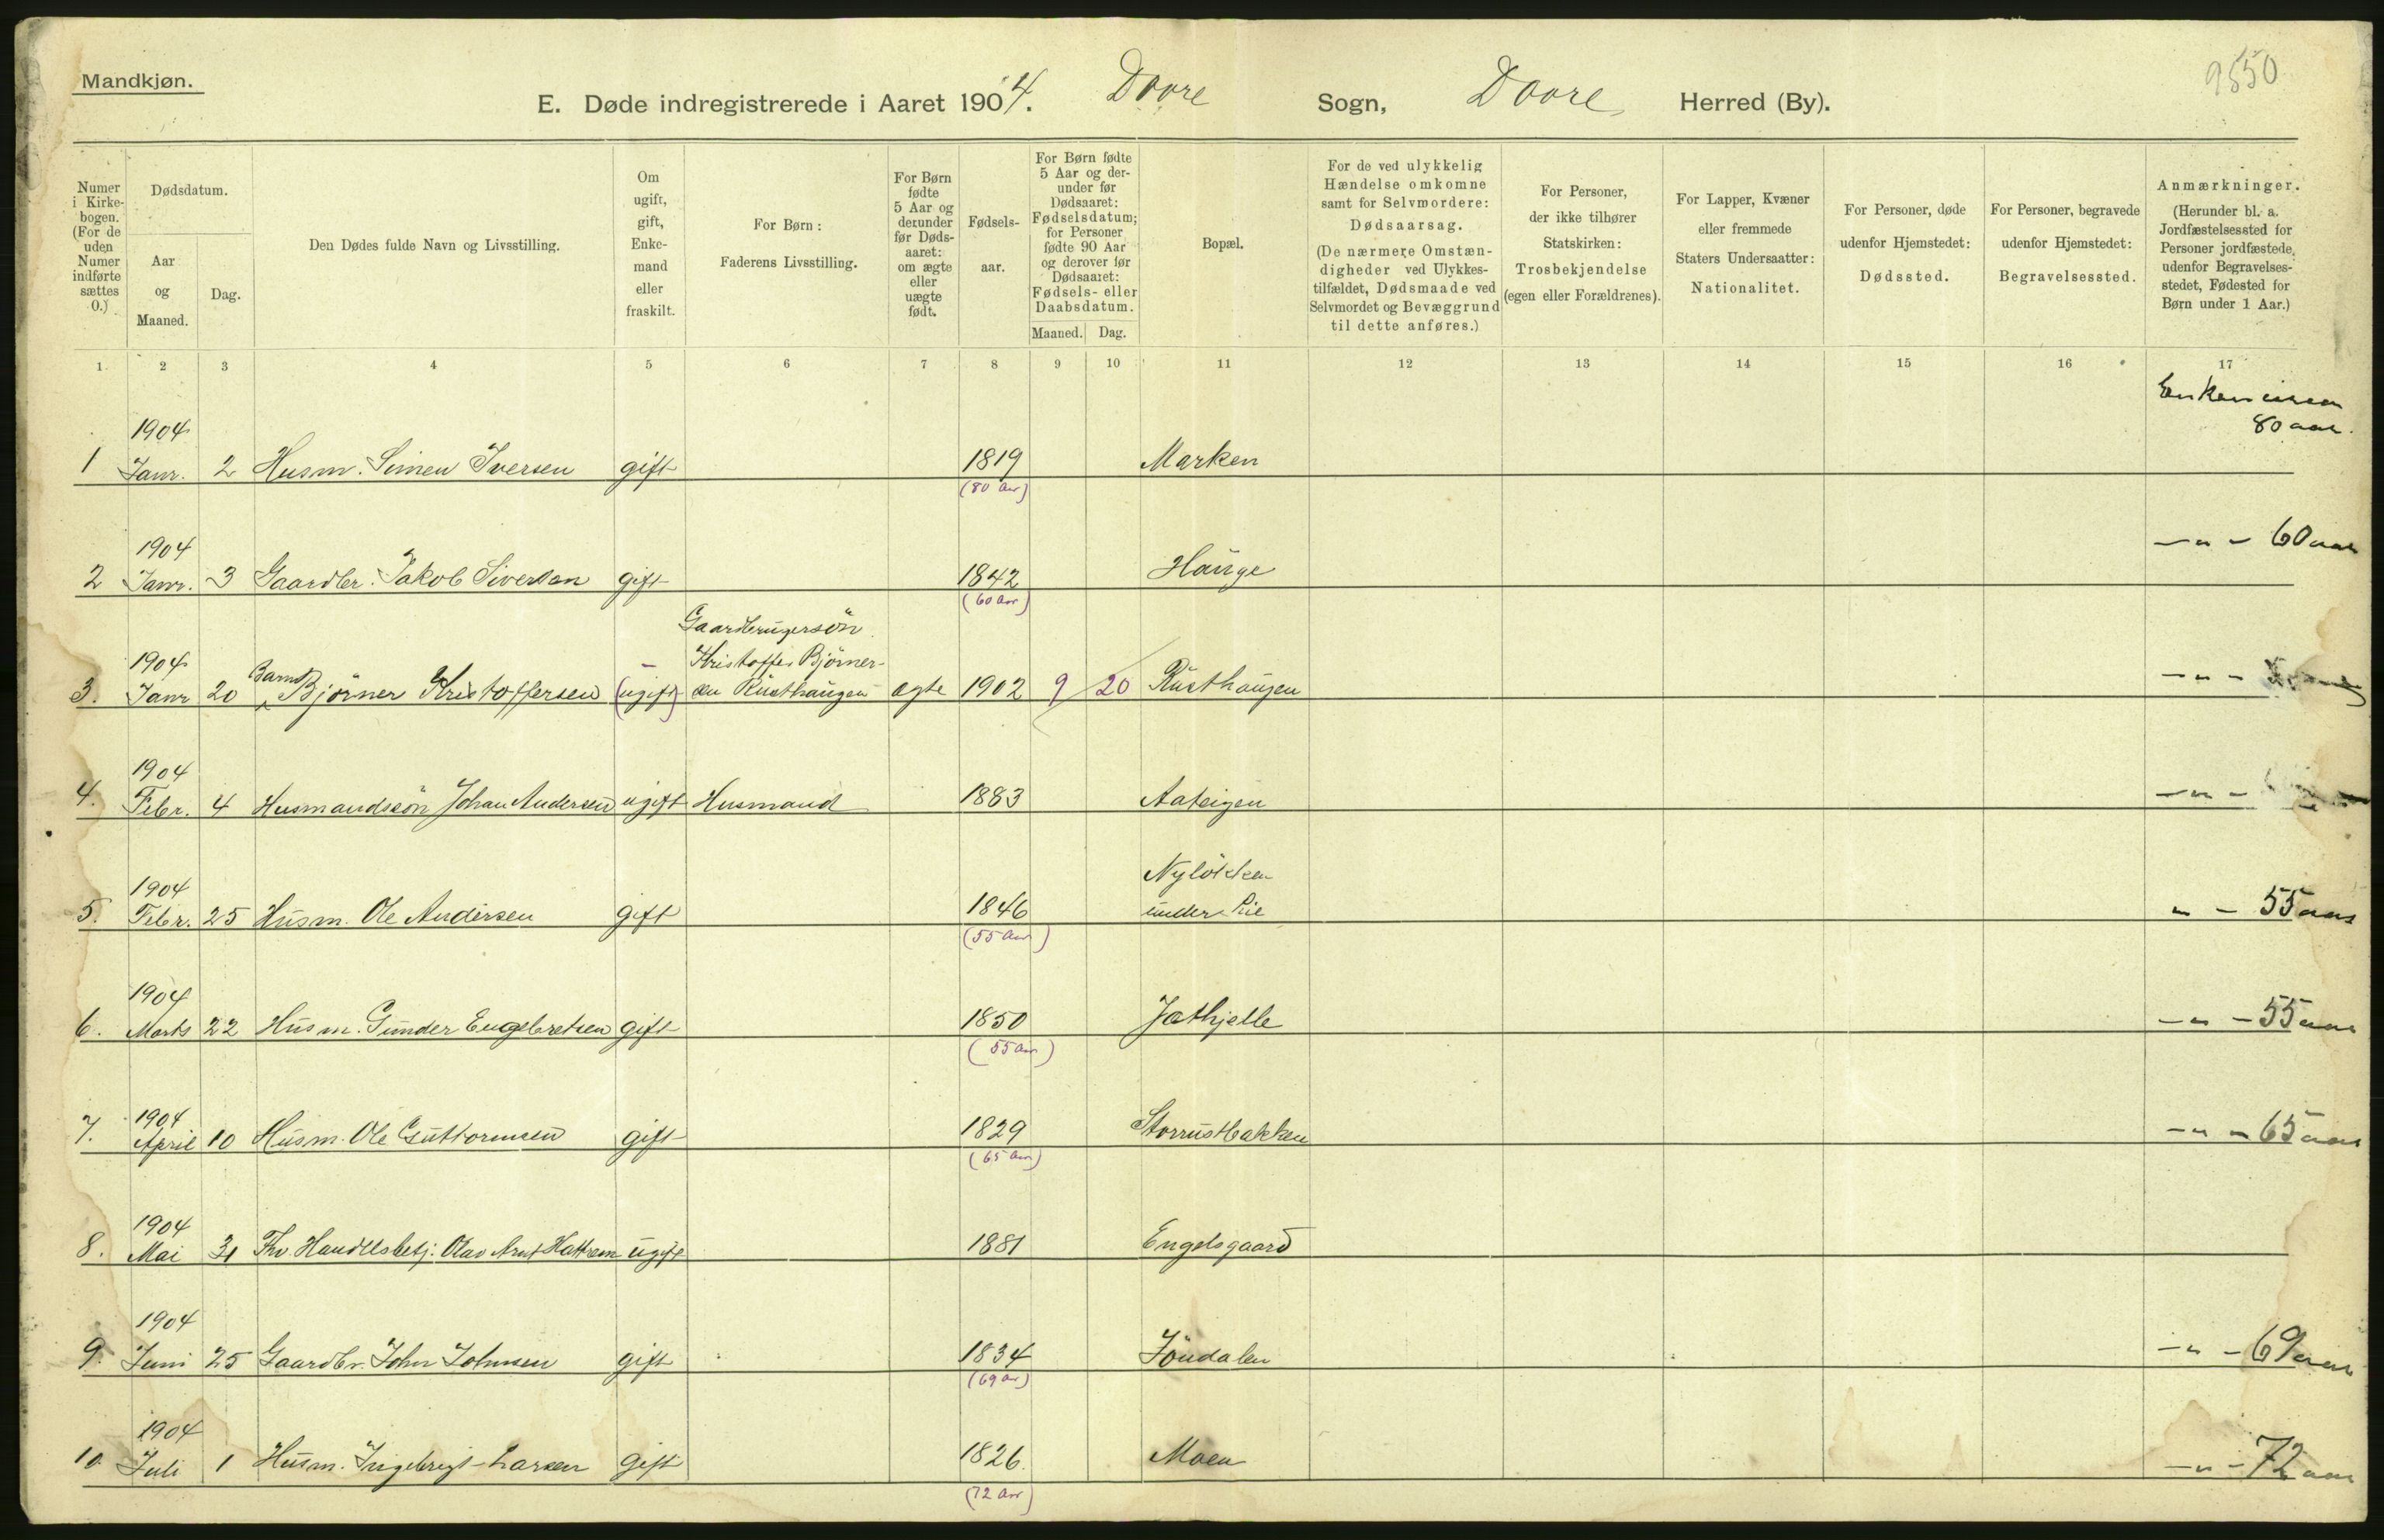 Mandkjøn.
9550
E. Døde indregistrerede i Aaret 1904. Dovre Sogn, Dovre Herred (By).
Numer i Kirkebogen. (For de uden Numer indførte sættes 0.)
Dødsdatum.
Aar og Maaned.
Dag.
Den Dødes fulde Navn og Livsstilling.
Om ugift, gift, Enkemand eller fraskilt.
For Børn: Faderens Livsstilling.
For Børn fødte 5 Aar og derunder før Dødsaaret: om ægte eller uægte født.
Fødselsaar.
For Børn fødte 5 Aar og derunder før Dødsaaret: Fødselsdatum; for Personer fødte 90 Aar og derover før Dødsaaret: Fødsels- eller Daabsdatum.
Maaned. Dag.
Bopæl.
For de ved ulykkelig Hændelse omkomne samt for Selvmordere: Dødsaarsag. (De nærmere Omstændigheder ved Ulykkestilfældet, Dødsmaade ved Selvmordet og Bevæggrund til dette anføres.)
For Personer, der ikke tilhører Statskirken: Trosbekjendelse (egen eller Forældrenes).
For Lapper, Kvæner eller fremmede Staters Undersaatter: Nationalitet.
For Personer, døde udenfor Hjemstedet: Dødssted.
For Personer, begravede udenfor Hjemstedet: Begravelsessted.
Anmærkninger. (Herunder bl. a. Jordfæstelsessted for Personer jordfæstede udenfor Begravelsesstedet, Fødested for Børn under 1 Aar.)
1 2 3 4 5 6 7 8 9 10 11 12 13 14 15 16 17
1904 Enken
80 aar.
1 Janr. 2 Husm. Simen Iversen gift 1819 Marken
(80 Aar)
1904 — „ — 60 aar
2 Janr. 3 Gaardbr. Jakob Sivertsen gift 1842 Hauge
(60 Aar)
Gaardbrugersön
1904 Barnet — Kristoffer Björner-
3. Janr 20 Björner Kristoffersen (ugift) en Rusthaugen ægte 1902 9 20 Rusthaugen — „ —
1904
4. Febr. 4 Husmandssön Johan Andersen ugift Husmand 1883 Aateigen — „ —
1904 Nylökken
5. Febr. 25 Husm. Ole Andersen gift 1846 under Lie „ — 55 aar
(55 Aar)
1904
6. Marts 22 Husm. Gunder Engebretsen gift 1850 Jathjelle — „ — 55 aar
(55 Aar)
1904
7. April 10 Husm. Ole Guttormsen gift 1829 Storrustbakken — „ — 65 aar
(65 Aar)
1904
8. Mai 31 Fhv. Handelsbetj. Olav Arnt Hattrem ugift 1881 Engelsgaard
1904
9. Juni 25 Gaardbr. John Johnsen gift 1834 Jöndalen — „ — 69 aar
(69 Aar)
1904
10. Juli 1 Husm. Ingebrigt Larsen gift 1826. Moen — „ — 72 aar
(72 Aar)